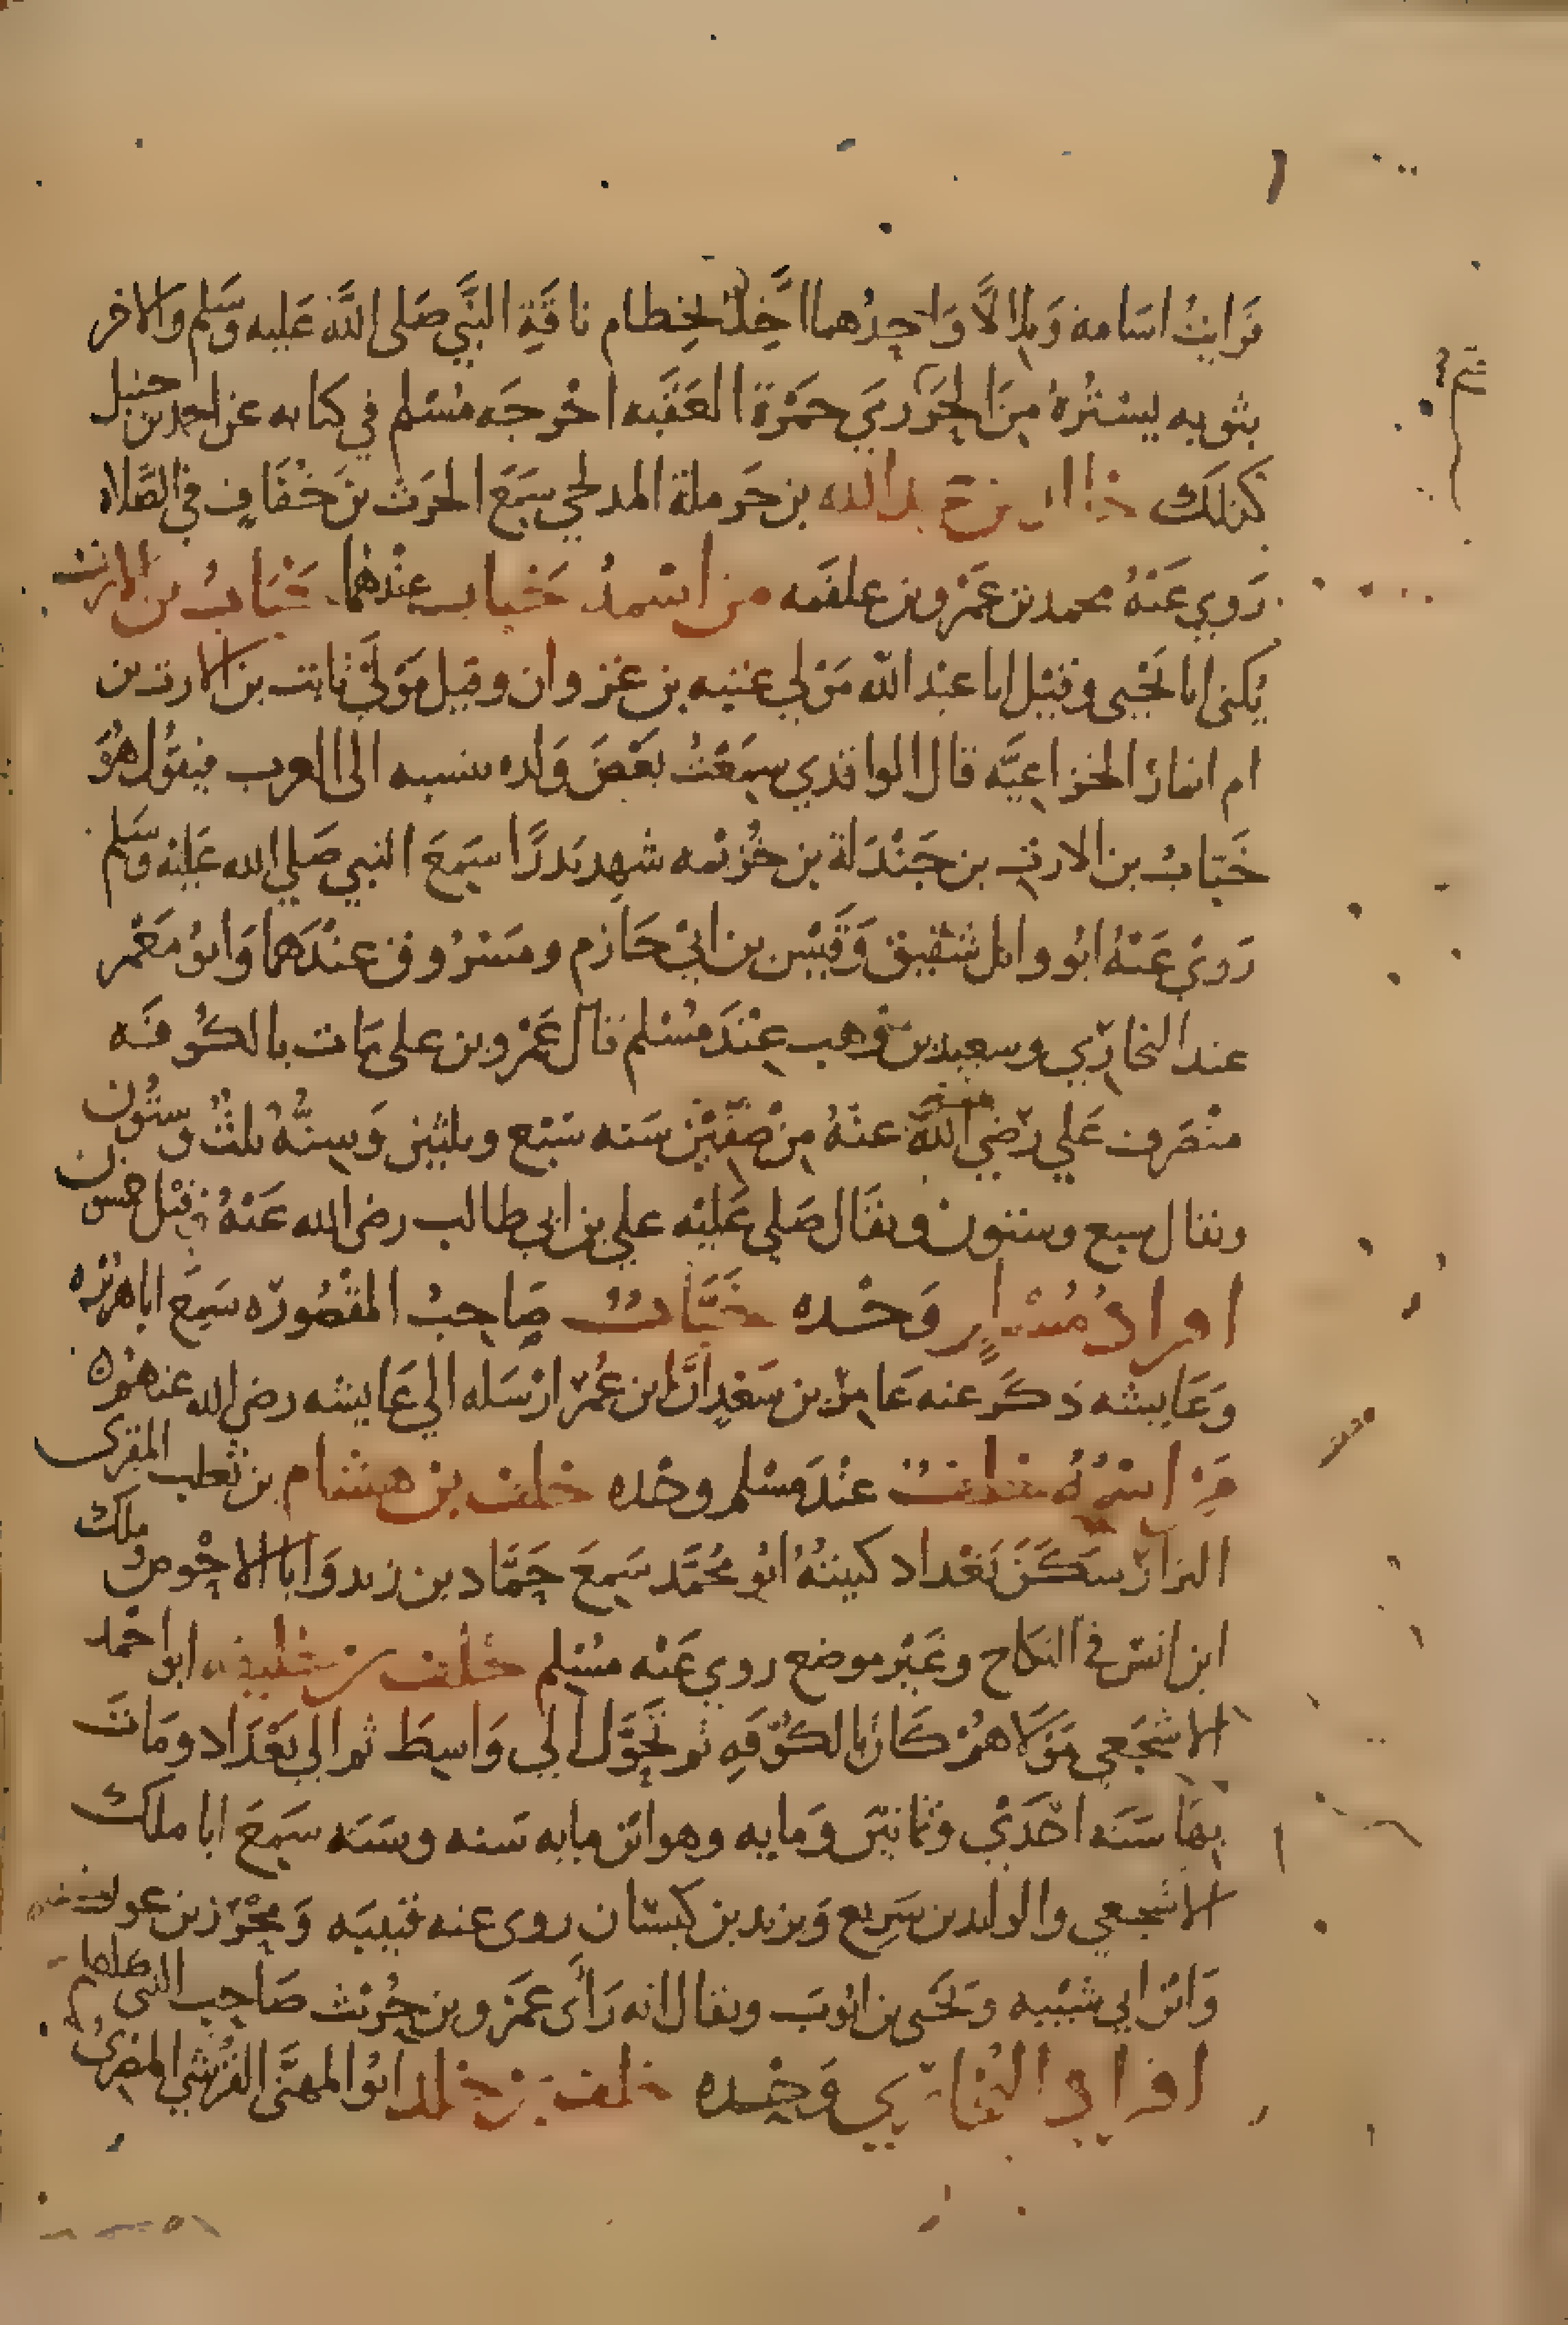 فرايت اسامة وبلالا واحدهما اخذ بخطام ناقة النبي صلى الله عليه وسلم والاخر
بثوبه يستره من الحر رمي جمرة العقبه اخرجه مسلم في كتابه عن احمد بن حنبل
كذلك خالد بن عبد الله بن حرملة المدلجي سمع الحرث بن خفاف في الصلاه
روي عنه محمد بن عمرو بن علقمه من اسمه خباب عندهما خباب بن الارت
يكنى ابا يحيى وقيل ابا عبد الله مولى عتبه بن غزوان وقيل مولى ثابت بن الارت بن
ام انمار الخزاعيه قال الواقدي سمعت بعض ولده ينسبه الى العرب فيقول هو
خباب بن الارت بن جندلة بن خزيمه شهد بدرا سمع النبي صلي الله عليه وسلم
روي عنه ابو وايل شقيق وقيس بن ابي حازم ومسروق عندهما وابو معمر
عند البخاري وسعيد بن وهب عند مسلم قال عمرو بن علي مات بالكوفه
منصرف علي رضي الله عنه من صفين سنه سبع وثلثين وسنه ثلث وستون
ويقال سبع وستون ويقال صلي عليه علي بن ابي طالب رضي الله عنه وقيل خمسون
افراد مسلم وحده خباب صاحب المقصوره سمع ابا هريره
وعايشه ذكر عنه عامر بن سعد ان ابن عمر ارسله الي عايشه رضي الله عنهم
من اسمه خلف عند مسلم وحده خلف بن هشام بن ثعلب المقرى
البزار سكن بغداد كنيته ابو محمد سمع حماد بن زيد وابا الاحوص وملك
ابن انس في النكاح وغير موضع روي عنه مسلم خلف بن خليفه ابو احمد
الاشجعي مولاهم كان بالكوفه ثم تحول الي واسط ثم الي بغداد ومات
بها سنه احدي وثمانين ومايه وهو ابن مايه سنه وسنه سمع ابا ملك
الاشجعي والوليد بن سريع ويزيد بن كيسان روى عنه قتيبه ومحرز بن عون
وابن ابي شيبه ويحيى بن ايوب ويقال انه راى عمرو بن حريث صاحب النبي
افراد البخاري وحده خلف بن خلد ابو المهنى القرشي المصري